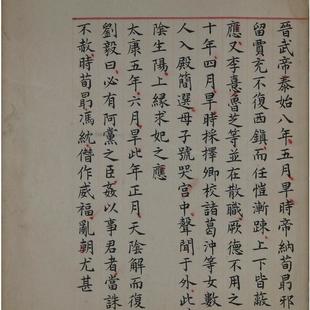 晉武帝泰始八年五月旱時帝納荀勗邪
留賈充不復西鎮而任愷漸疎上下皆蔽
應又李憙魯芝等並在散職厥德不用之
十年四月旱時採擇卿校諸葛沖等女數
人入殿簡選母子號哭宮中聲聞于外此
陰生陽上緣求妃之應
太康五年六月旱此年正月天陰解而復
劉毅曰必有阿黨之臣姦以事君者當誅
不赦時荀勗馮紞僭作威福亂朝尤甚